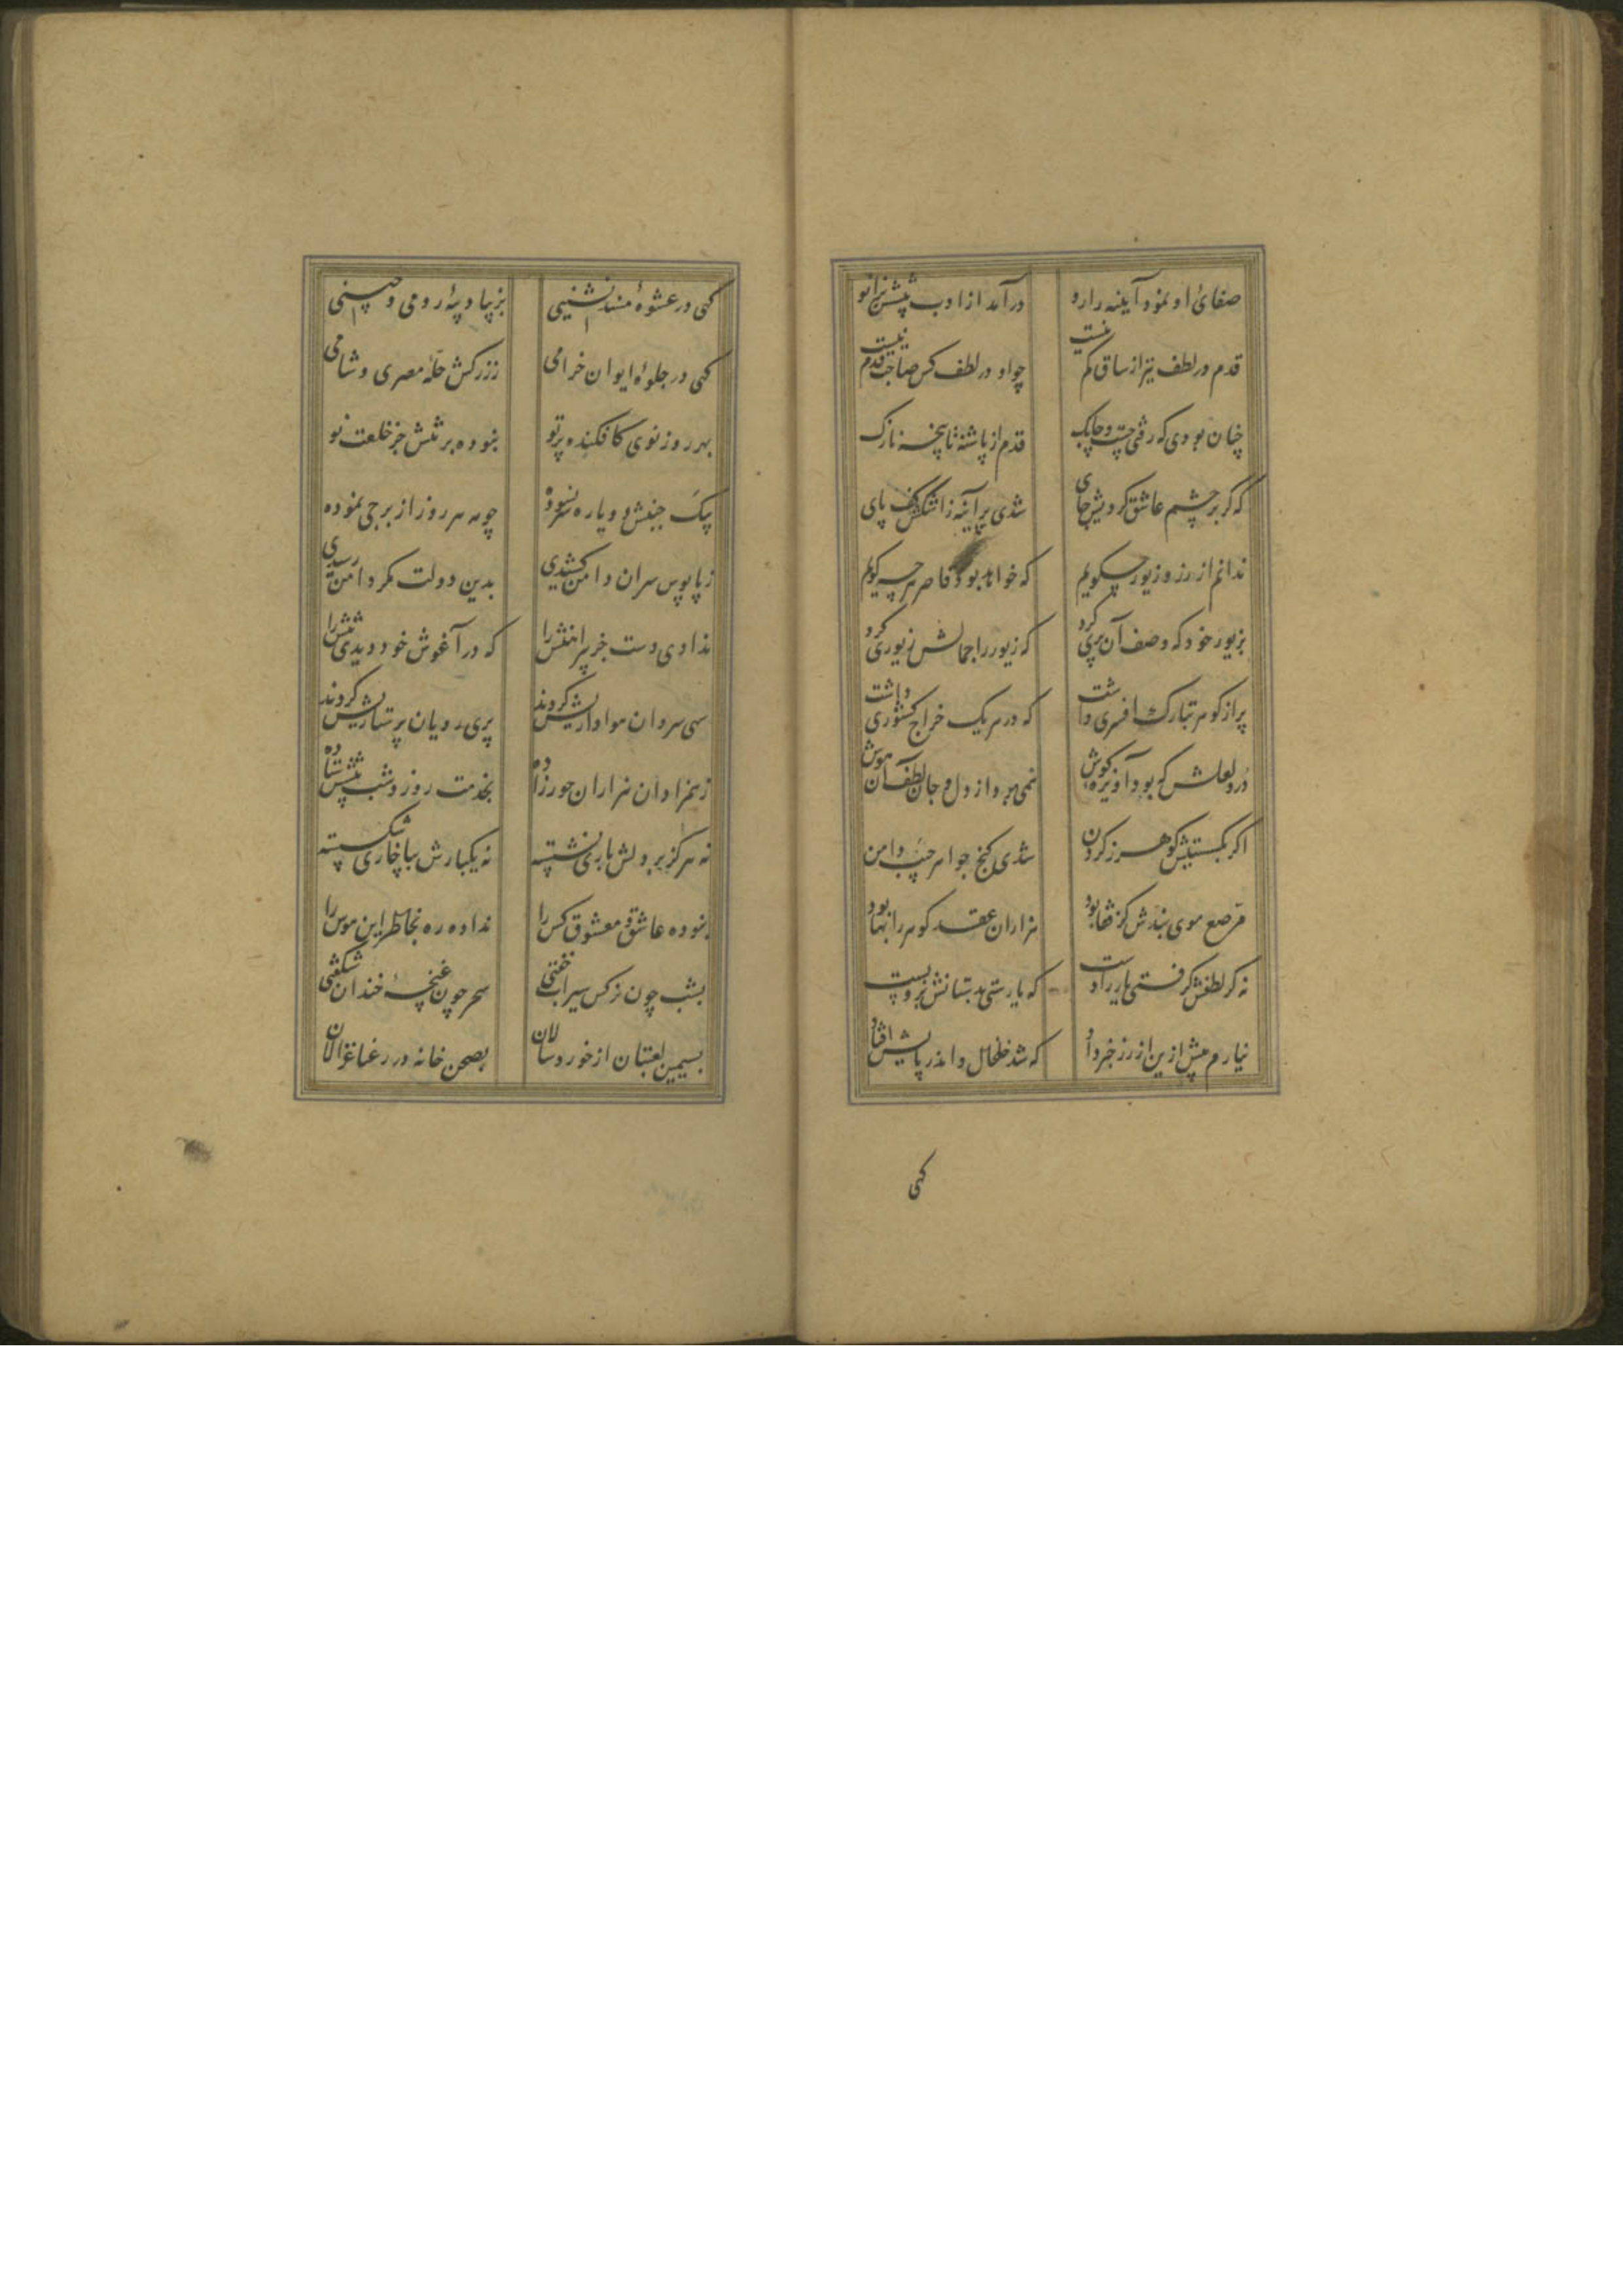 صفائ او نمود آیینه را رو
درآمد از ادب پیشش بزانو
قدم در لطف نیز از ساق کم نیست
چو او در لطف کس صاحب قدم نیست
چنان بودی که رفتی چست و چابک
قدم از پاشنه تا پنجه نازک
که گر بر چشم عاشق کردیش جای
شدی پر آبله ز اشکش کف پای
ندانم از زر و زیور چه گویم
که خواهد بود قاصر هر چه گویم
بزیور خود که وصف آن پری کرد
که زیور را جمالش زیوری کرد
پر از گوهر بتارک افسری داشت
که در هر یک خراج کشوری داشت
در و لعلش که بود آویزه گوش
همی برد از دل و جان لطف آن هوش
اگر بگسستیش گوهر ز گردن
شدی گنج جواهر جیب و دامن
مرصع موی بندش کز قفا بود
هزاران عقد گوهر را بها بود
نه گر لطفش گرفتی یاره را دست
که یارستی بدستانش برو بست
نیارم بیش ازین از زر خبر داد
که شد خلخال و اندر پایش افتاد
گهی
گهی در عشوهٔ مسند نشینی
بزیبا دیبهٔ رومی و چینی
گهی در جلوهٔ ایوان خرامی
ز زرکش حلهٔ مصری و شامی
بهر روز نوی کافکنده پرتو
نبوده بر تنش جز خلعت نو
بیک جیبش دو باره سر نسوده
چو مه هر روز از برجی نموده
ز پابوس سران دامن کشیدی
بدین دولت مگر دامن رسیدی
ندادی دست جز پیراهنش را
که در آغوش خود دیدی تنش را
سهی سروان هواداریش کردند
پری رویان پرستاریش کردند
ز همزادان هزاران حورزاده
بخدمت روز و شب پیشش ستاده
نه هرگز بر دلش باری نشسته
نه یکبارش بپا خاری شکسته
نبوده عاشق و معشوق کس را
نداده ره بخاطر این هوس را
بشب چون نرگس سیراب خفتی
سحر چون غنچهٔ خندان شکفتی
بسیمین لعبتان از خوردسالان
بصحن خانه در رعنا غزالان